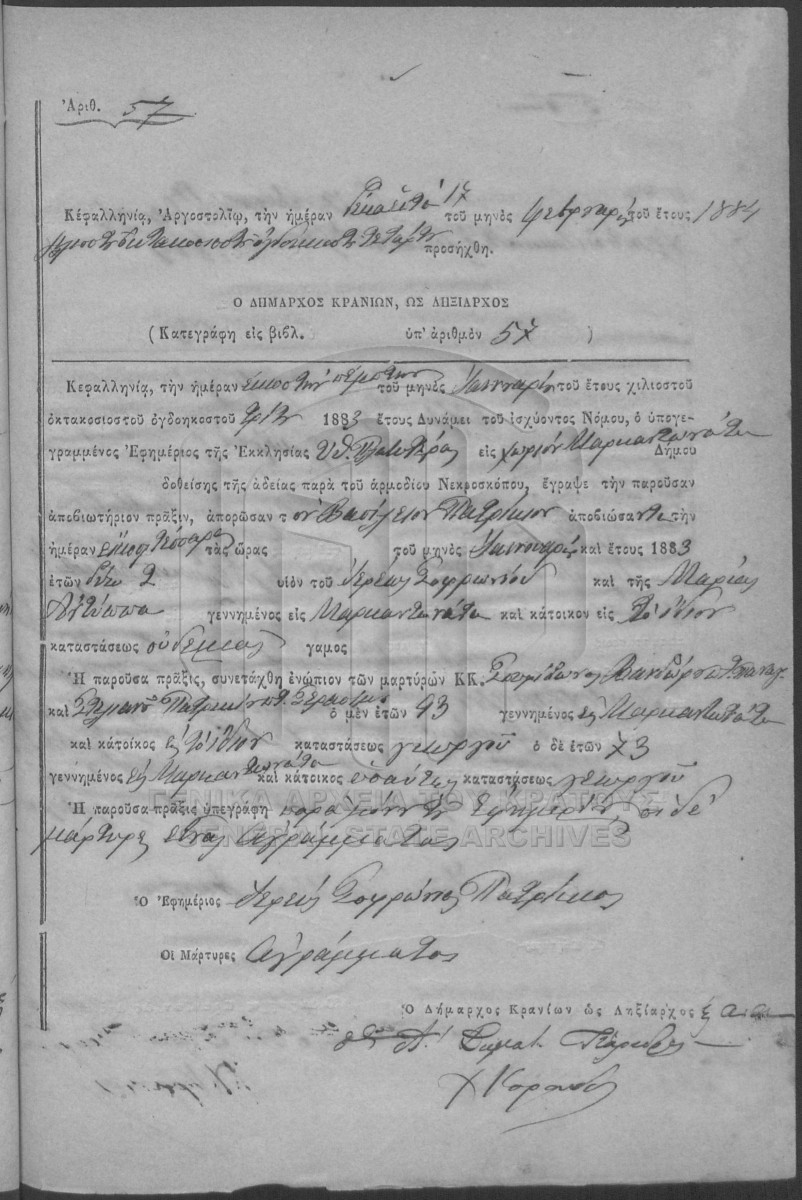 Ἀριθ. 57
Κεφαλληνία, Ἀργοστολίῳ, τὴν ἡμέραν 17 τοῦ μηνὸς Φεβρουαρίου τοῦ ἔτους 1884
προσήχθη.
Ο ΔΗΜΑΡΧΟΣ ΚΡΑΝΙΩΝ, ΩΣ ΛΗΞΙΑΡΧΟΣ
(Κατεγράφη εἰς βιβλ. ὑπ' ἀριθμὸν 57 )
Κεφαλληνία, τὴν ἡμέραν εἰκοστὴν πέμπτην τοῦ μηνὸς Ἰαννουαρίου τοῦ ἔτους χιλιοστοῦ
ὀκτακοσιοστοῦ ὀγδοηκοστοῦ τρίτου 1883 ἔτους Δυνάμει τοῦ ἰσχύοντος Νόμου, ὁ ὑπογε-
γραμμένος Ἐφημέριος τῆς Ἐκκλησίας Πλατυτέρας εἰς χωρίον Μαρκαντωνάτα Δήμου
δοθείσης τῆς ἀδείας παρὰ τοῦ ἁρμοδίου Νεκροσκόπου, ἔγραψε τὴν παροῦσαν
ἀποβιωτήριον πρᾶξιν, ἀπορῶσαν τὸν Βασίλειον Πατρίκιον ἀποβιώσαντα τὴν
ἡμέραν τὰς ὥρας τοῦ μηνὸς Ἰαννουαρίου καὶ ἔτους 1883
ἐτῶν δύο 2 υἱὸν τοῦ Ἱερέως Σοφρωνίου καὶ τῆς Μαρίας
γεννημένος εἰς Μαρκαντωνάτα καὶ κάτοικον εἰς τὸ ἴδιον
καταστάσεως οὐδεμίας γαμος
Ἡ παροῦσα πρᾶξις, συνετάχθη ἐνώπιον τῶν μαρτύρων ΚΚ. Σπυρίδωνος
καὶ ὁ μὲν ἐτῶν 43 γεννημένος εἰς Μαρκαντωνάτα
καὶ κάτοικος εἰς τὸ ἴδιον καταστάσεως γεωργοῦ ὁ δὲ ἐτῶν 73
γεννημένος εἰς Μαρκαντωνάτα καὶ κάτοικος ὡσαύτως καταστάσεως γεωργοῦ
Ἡ παροῦσα πρᾶξις ὑπεγράφη Ἐφημερίου, οἱ δὲ
μάρτυρες εἶναι ἀγράμματοι
ΓΕΝΙΚΑ ΑΡΧΕΙΑ ΤΟΥ ΚΡΑΤΟΥΣ
GENERAL STATE ARCHIVES
Ὁ Ἐφημέριος Ἱερεὺς Σοφρώνιος Πατρίκιος
Οἱ Μάρτυρες ἀγράμματοι
Ὁ Δήμαρχος Κρανίων ὡς Ληξίαρχος